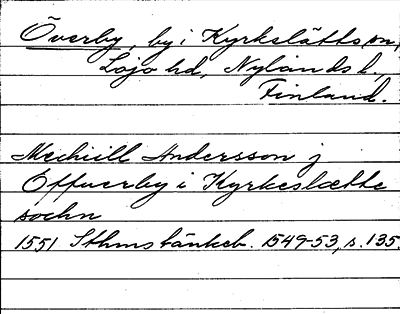 Överby, by i Kyrkslätts sn,
Lojo hd, Nylands l.,
Finland.
Mechiill Andersson j
Öffuerby i Kyrkeslætte
sochn
1551 Sthms tänkeb. 1549-53, s. 135.